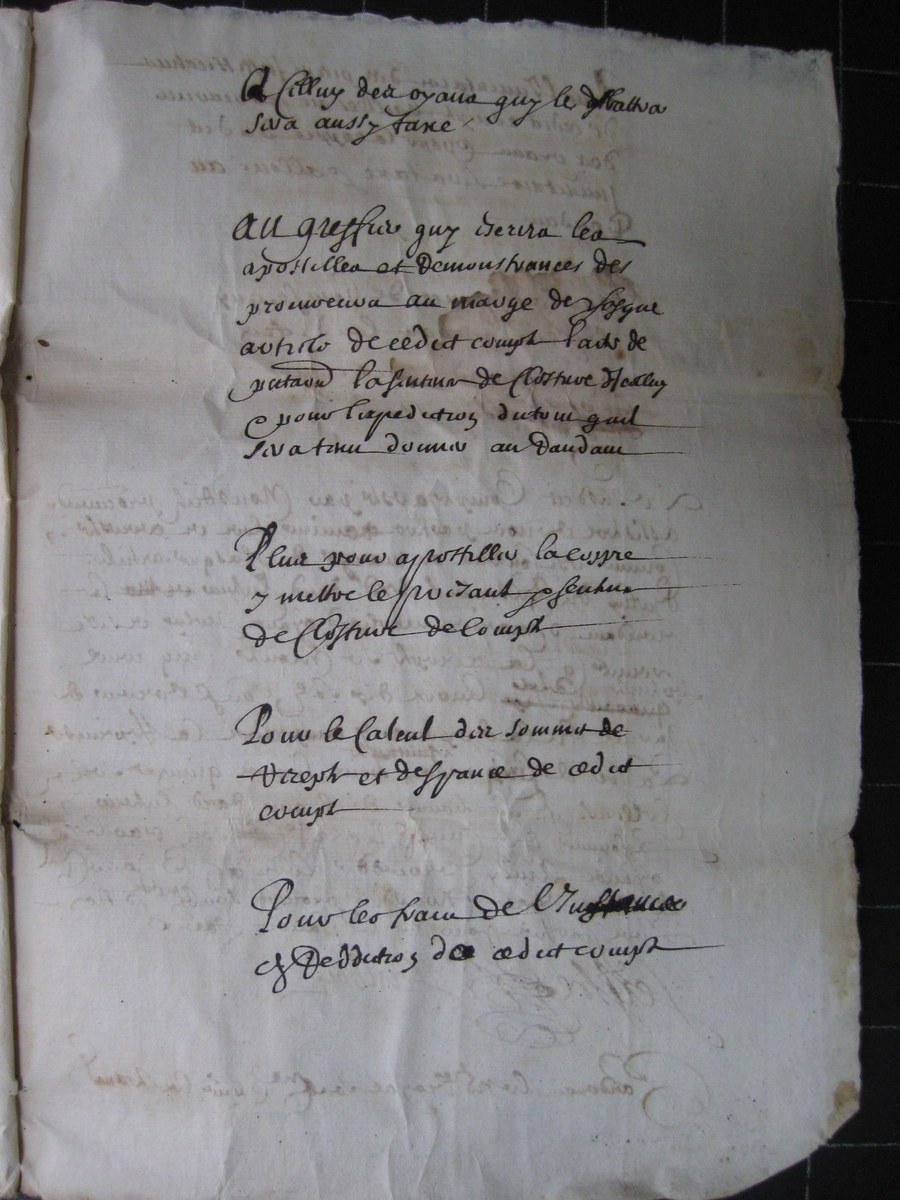 A Cilluy des oyans quy le debattra
sera aussy taxé
Au greffier quy escrira les
apostilles et demonstrances des
procureurs au marge de chasque
article de cedict compte l'acte de
la sentence de Closture d'icelluy
et pour l'expedition du tout qu'il
sera tenu donner au Rendant
Plus pour apostiller la coppie
y mettre le sentence
de Closture de compte
Pour le Calcul des sommes de
recepte et despence de cedict
compte
Pour les frais de l'Instance
et Reddition de cedict compte